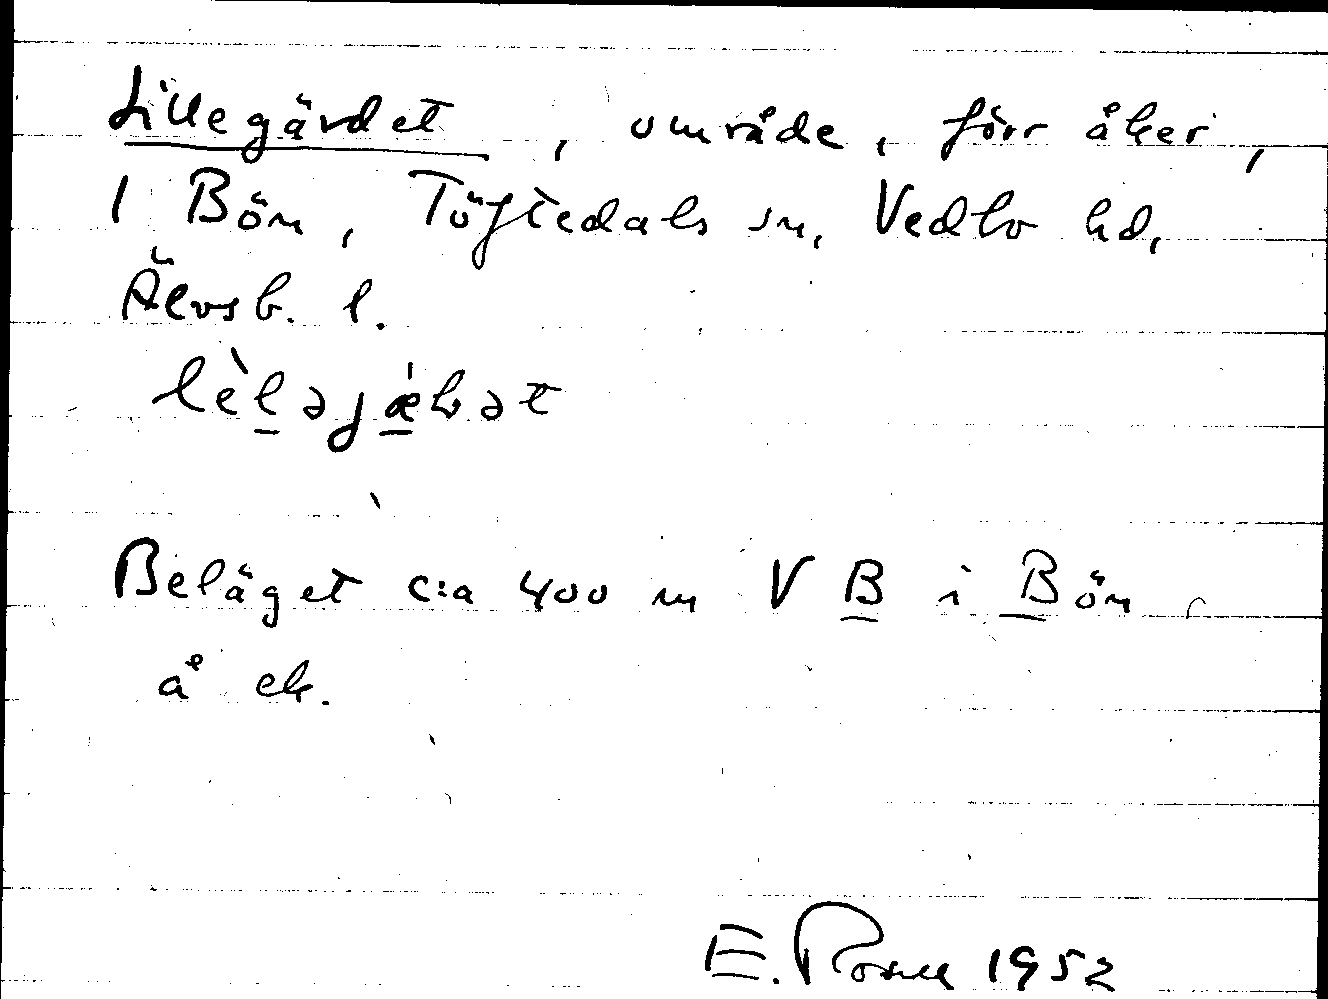 Lillegärdet, område, förr åker,
1 Bön, Töftedals sn, Vedbo hd,
Älvsb. l.
lèləjæ̀bət
Beläget c:a 400 m V B i Bön
å ek.
E. 1952